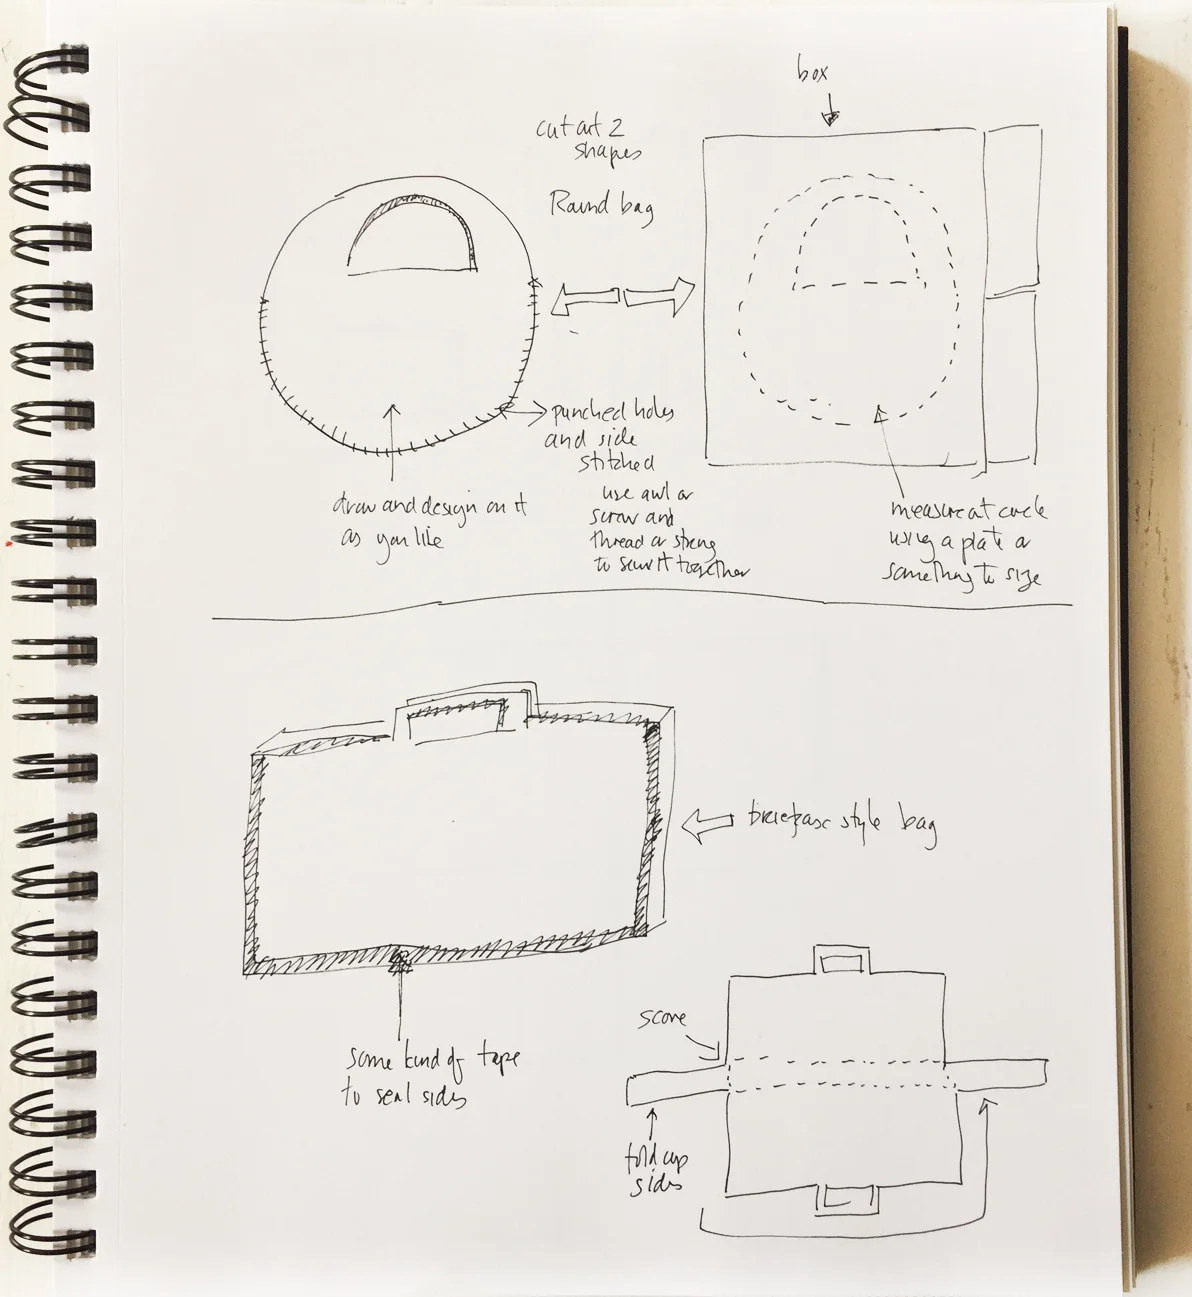 box
cut out 2
shapes
Round bag
punched holes
and side
stitched
use awl or
screw and
thread or string
to sew it together
draw and design on it
as you like
measure at circle
using a plate or
something to size
briefcase style bag
score
some kind of tape
to seal sides
fold up
sides